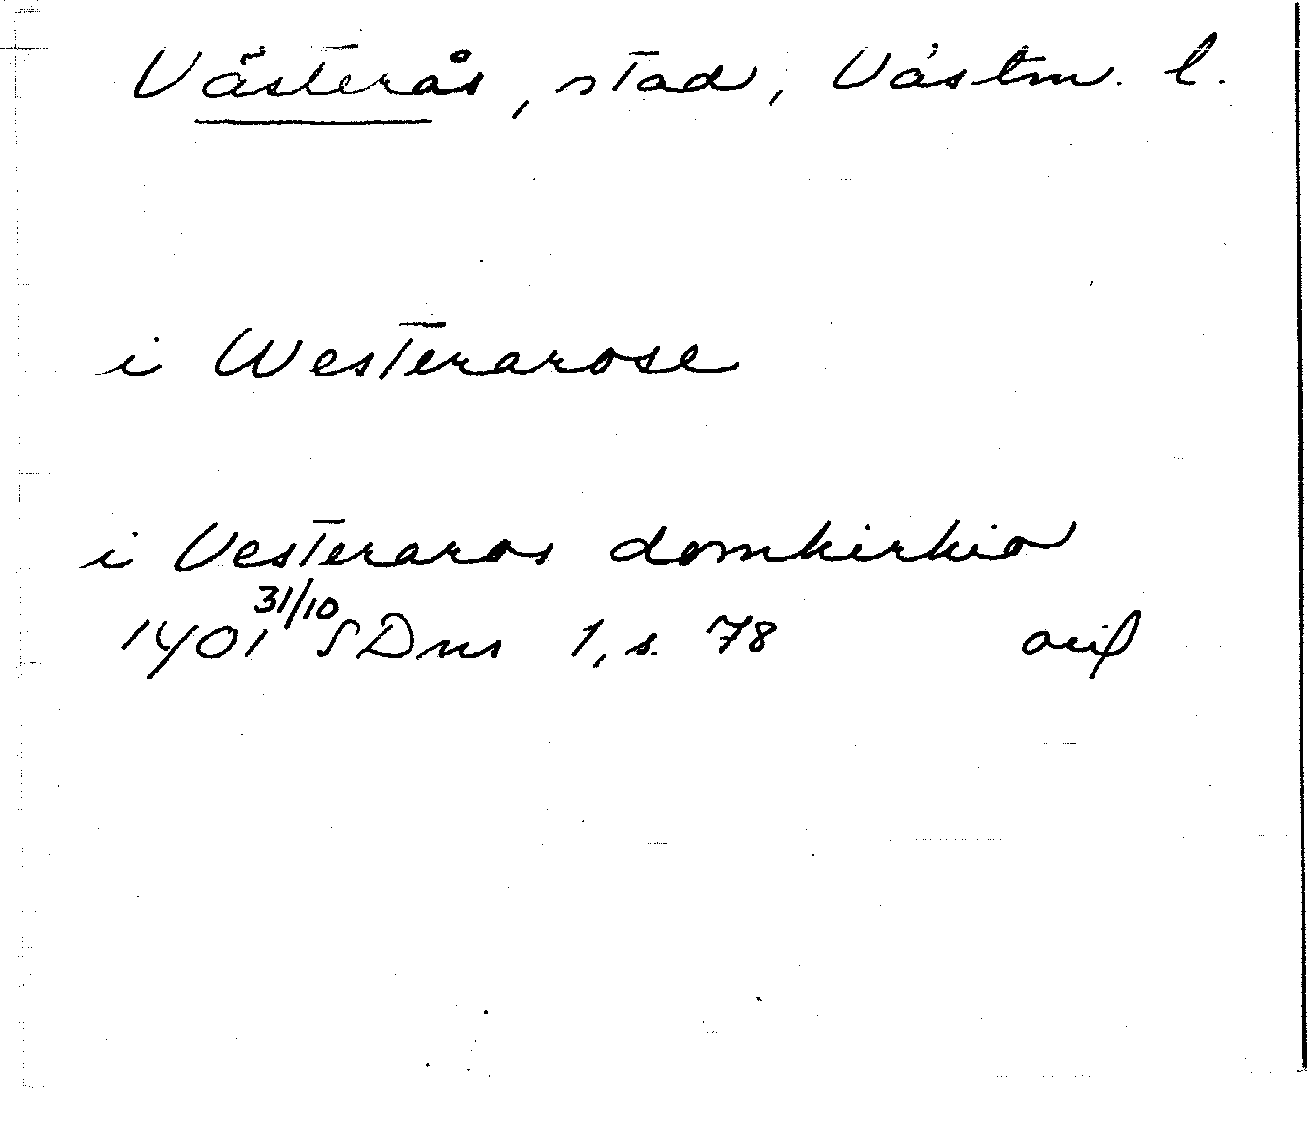 Västerås, stad, Västm. l.
i Westerarose
i Vesteraros domkirkio
1401 31/10 SDns 1, s. 78 avif